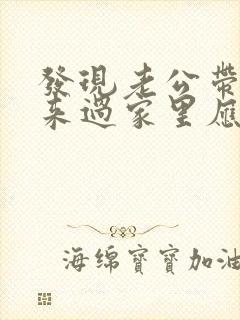 發現老公帶
來過家里應
海绵寶寶加油